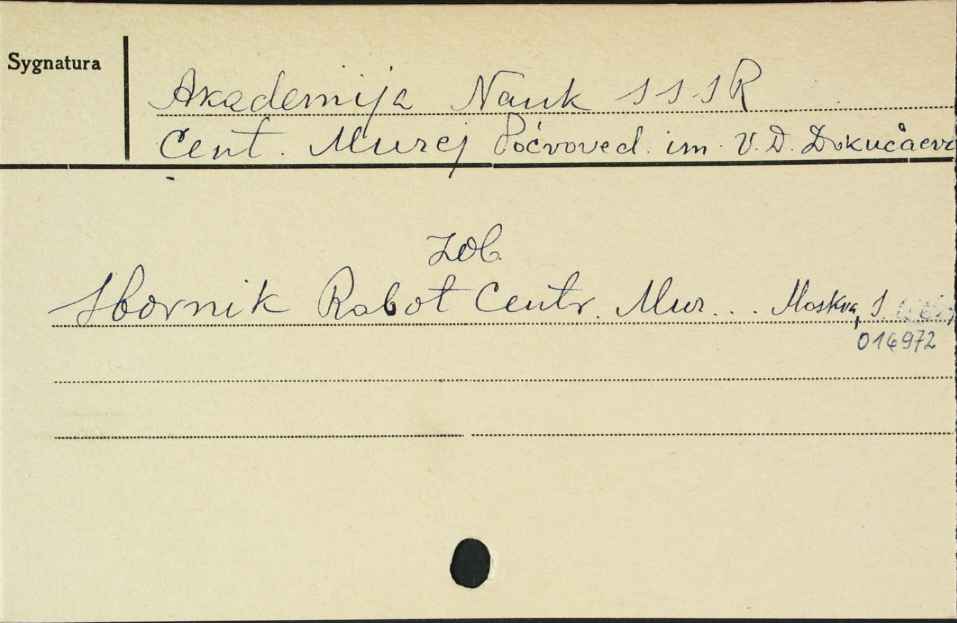 Sygnatura
Akademija Nauk SSSR
Cent. Muzej Počvoved. im. V. D. Dokučaeva
zob.
Sbornik Rabot Centr. Muz... Moskva, S.
014972